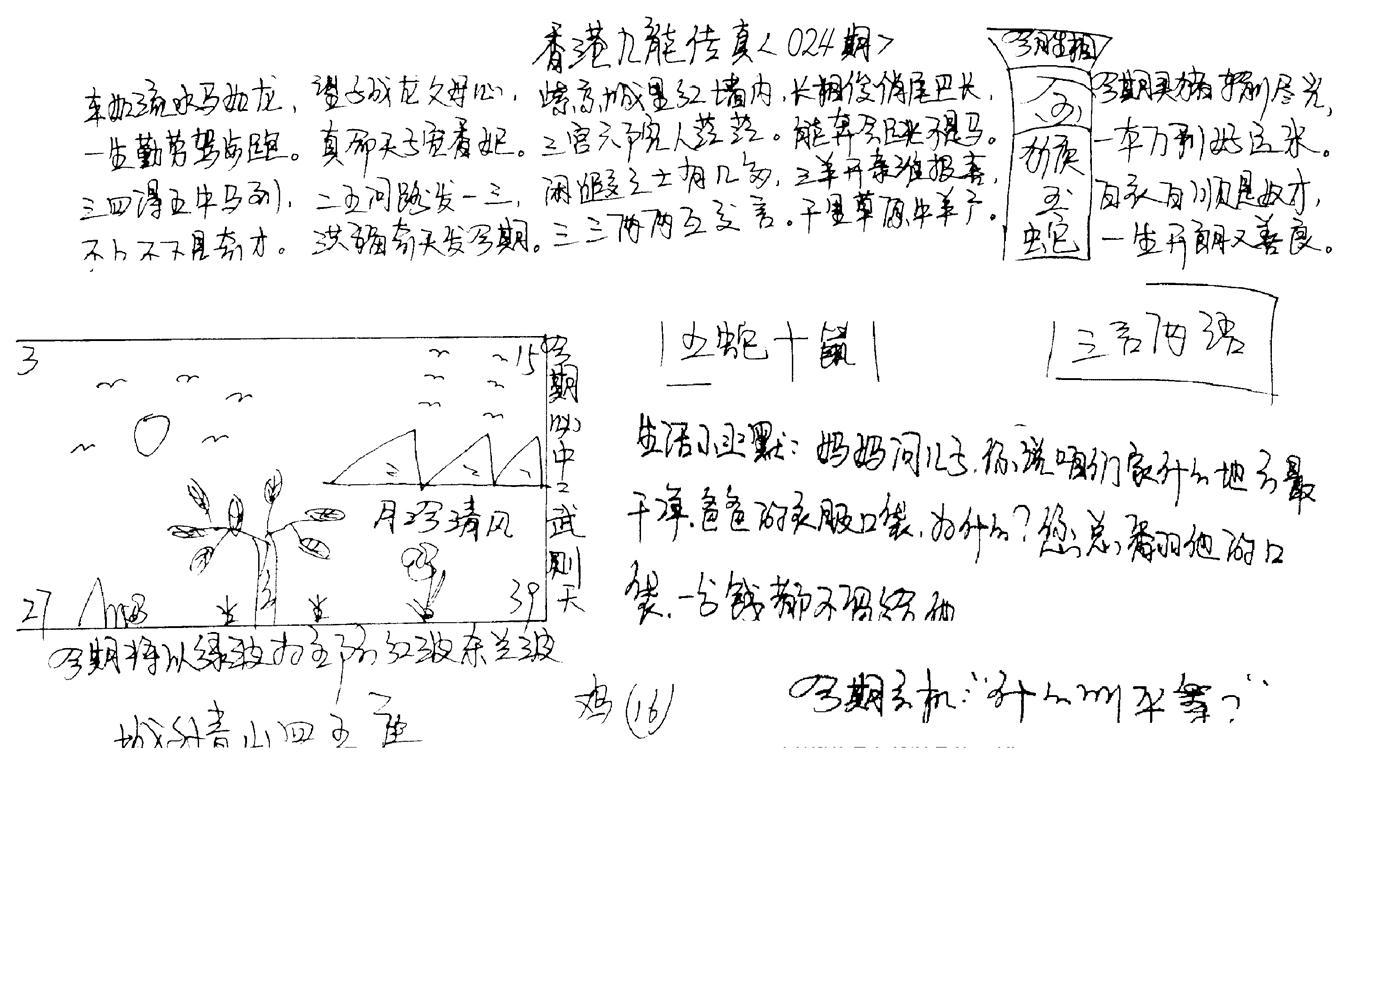 香港九龍传真<024期>
今期生相
车如流水马如龙，望子成龙父母心，紫京城里红墙内，长相俊俏尾巴长，
一生勤劳驾与跑。真命天子宠香妃。三宫六院人莹莹。能奔会跑不是马。
三四得五中马到，二五问路发一三，闲暇之士有几多，三羊开泰谁报喜，
不卜不下是奇才。洪福齐天发今期。三三两两互交言。千里草原牛羊子。
今期买猪输尽光，
一本万利好运来。
百衣百顺是奴才，
一生开朗又善良。
蛇
五蛇十鼠
三言两语
3
15
27
39
今期必中
武则天
三 二 二
月 清风
生活小幽默：妈妈问儿子，你说咱们家什么地方最
干净，爸爸的衣服口袋，为什么？您总翻他的口
袋，一分钱都不留给他
今期将以绿波为主防红波杀兰波
山四五
鸡(16)
今期玄机："什么 平等？"